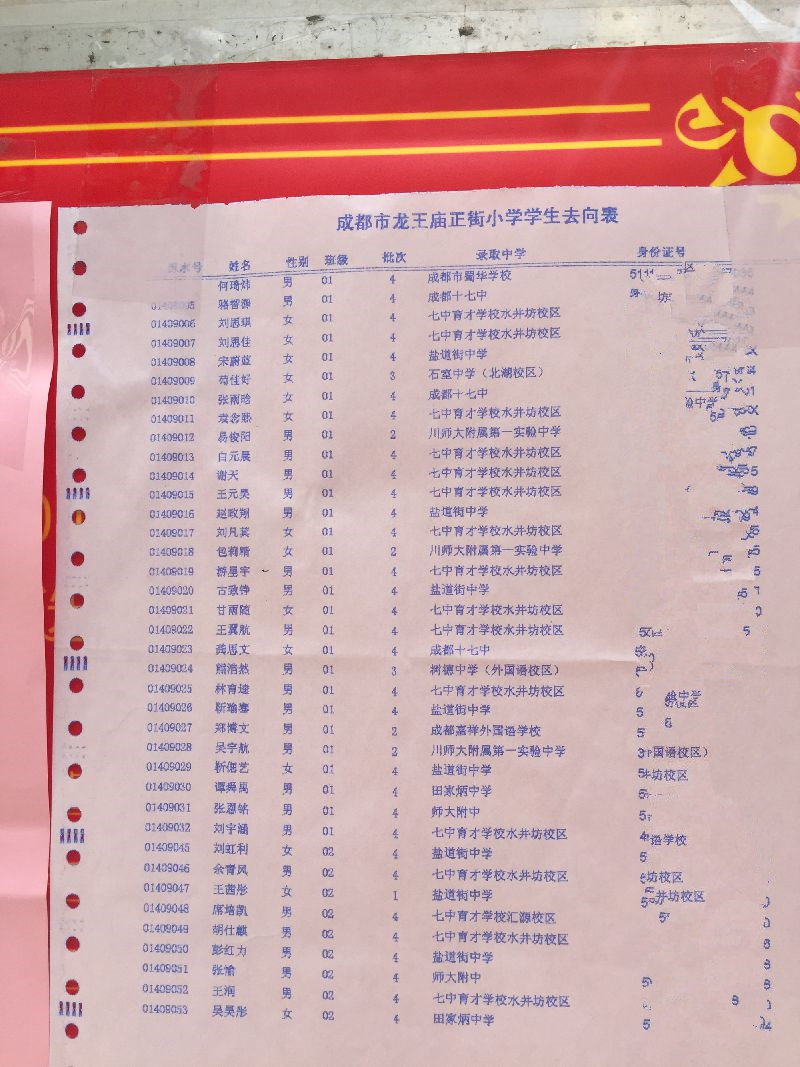 成都市龙王庙正街小学学生去向表
流水号 姓名 性别 班级 批次 录取中学 身份证号
何 男 01 4 成都市蜀华学校
01409005 骆智渊 男 01 4 成都十七中
01409006 刘思琪 女 01 4 七中育才学校水井坊校区
01409007 刘思佳 女 01 4 七中育才学校水井坊校区
01409008 宋蔚蓝 女 01 4 盐道街中学
01409009 苟佳好 女 01 3 石室中学（北湖校区）
01409010 张雨晗 女 01 4 成都十七中
01409011 袁念熙 女 01 4 七中育才学校水井坊校区
01409012 易俊阳 男 01 2 川师大附属第一实验中学
01409013 白元晨 男 01 4 七中育才学校水井坊校区
01409014 谢天 男 01 4 七中育才学校水井坊校区
01409015 王元昊 男 01 4 七中育才学校水井坊校区
01409016 赵政翔 男 01 4 盐道街中学
01409017 刘凡 女 01 4 七中育才学校水井坊校区
01409018 包莉晴 女 01 2 川师大附属第一实验中学
01409019 游星宇 男 01 4 七中育才学校水井坊校区
01409020 古致铮 男 01 4 盐道街中学
01409021 甘雨随 女 01 4 七中育才学校水井坊校区
01409022 王翼航 男 01 4 七中育才学校水井坊校区
01409023 龚思文 女 01 4 成都十七中
01409024 熊浩然 男 01 3 树德中学（外国语校区）
01409025 林育璇 男 01 4 七中育才学校水井坊校区
01409026 靳瑜骞 男 01 4 盐道街中学
01409027 郑博文 男 01 2 成都嘉祥外国语学校
01409028 吴宇航 男 01 2 川师大附属第一实验中学
01409029 靳偲艺 女 01 4 盐道街中学
01409030 谭舜禹 男 01 4 田家炳中学
01409031 张恩铭 男 01 4 师大附中
01409032 刘宇涵 男 01 4 七中育才学校水井坊校区
01409045 刘虹利 女 02 4 盐道街中学
01409046 余青风 男 02 4 七中育才学校水井坊校区
01409047 王茜彤 女 02 1 盐道街中学
01409048 席培凯 男 02 4 七中育才学校汇源校区
01409049 胡仕麒 男 02 4 七中育才学校水井坊校区
01409050 彭红力 男 02 4 盐道街中学
01409051 张愉 男 02 4 师大附中
01409052 王润 男 02 4 七中育才学校水井坊校区
01409053 吴昊彤 女 02 4 田家炳中学